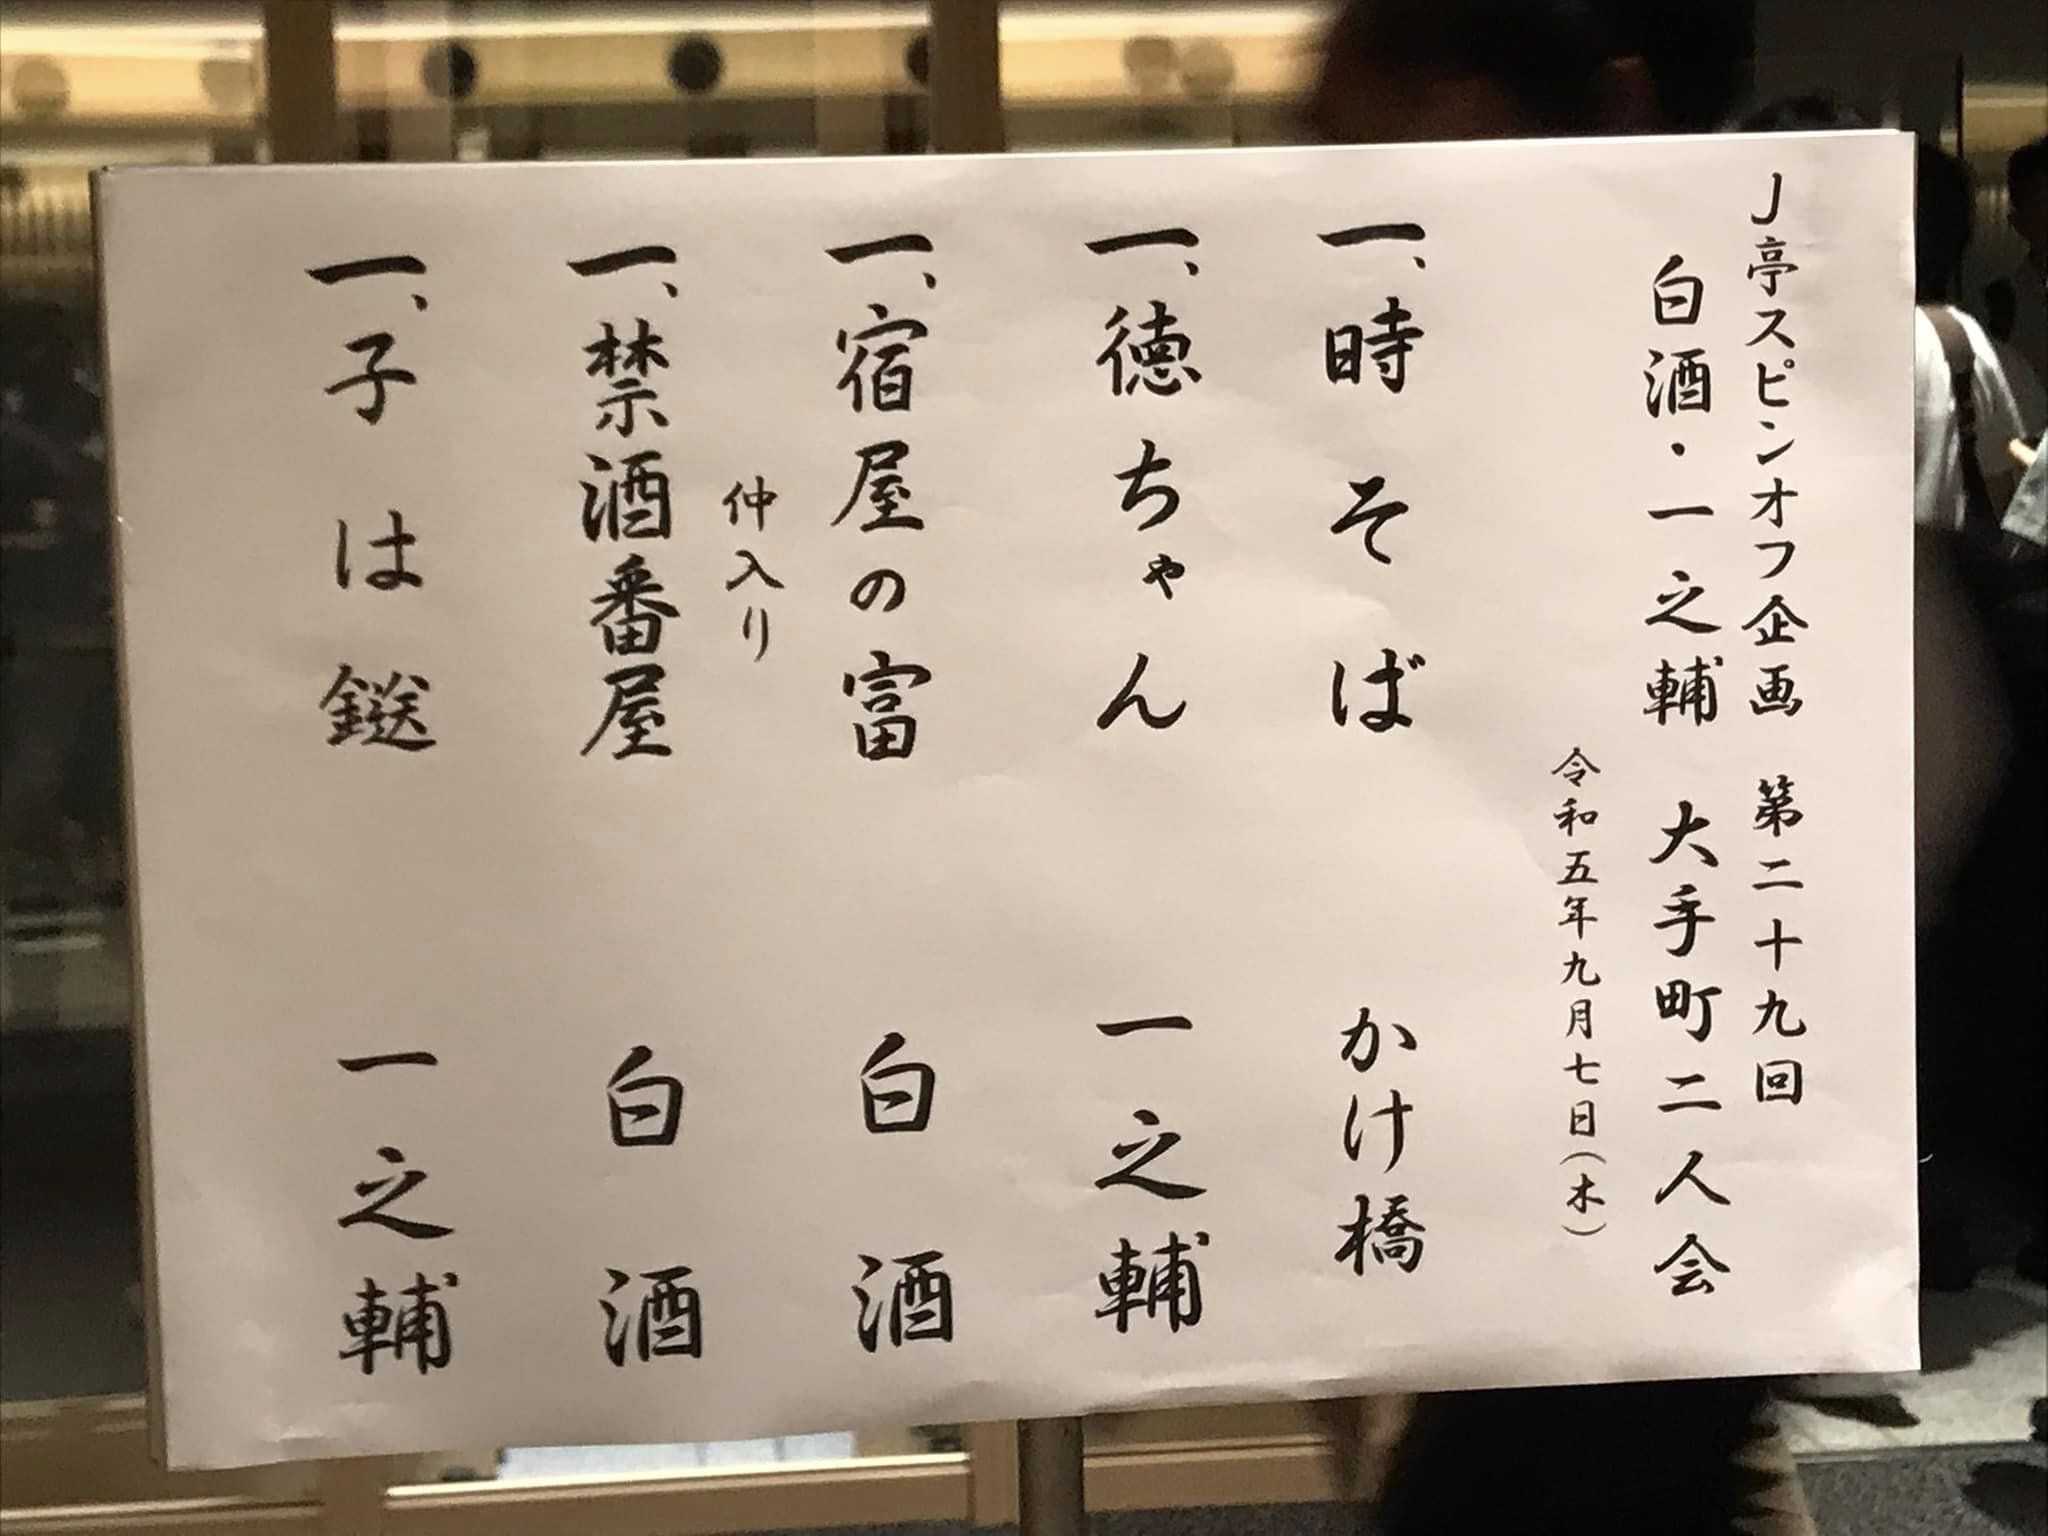 J亭スピンオフ企画 第二十九回
白酒・一之輔 大手町二人会
令和五年九月七日(木)
一、時そば かけ橋
一、徳ちゃん 一之輔
一、宿屋の富 白酒
仲入り
一、禁酒番屋 白酒
一、子は鎹 一之輔